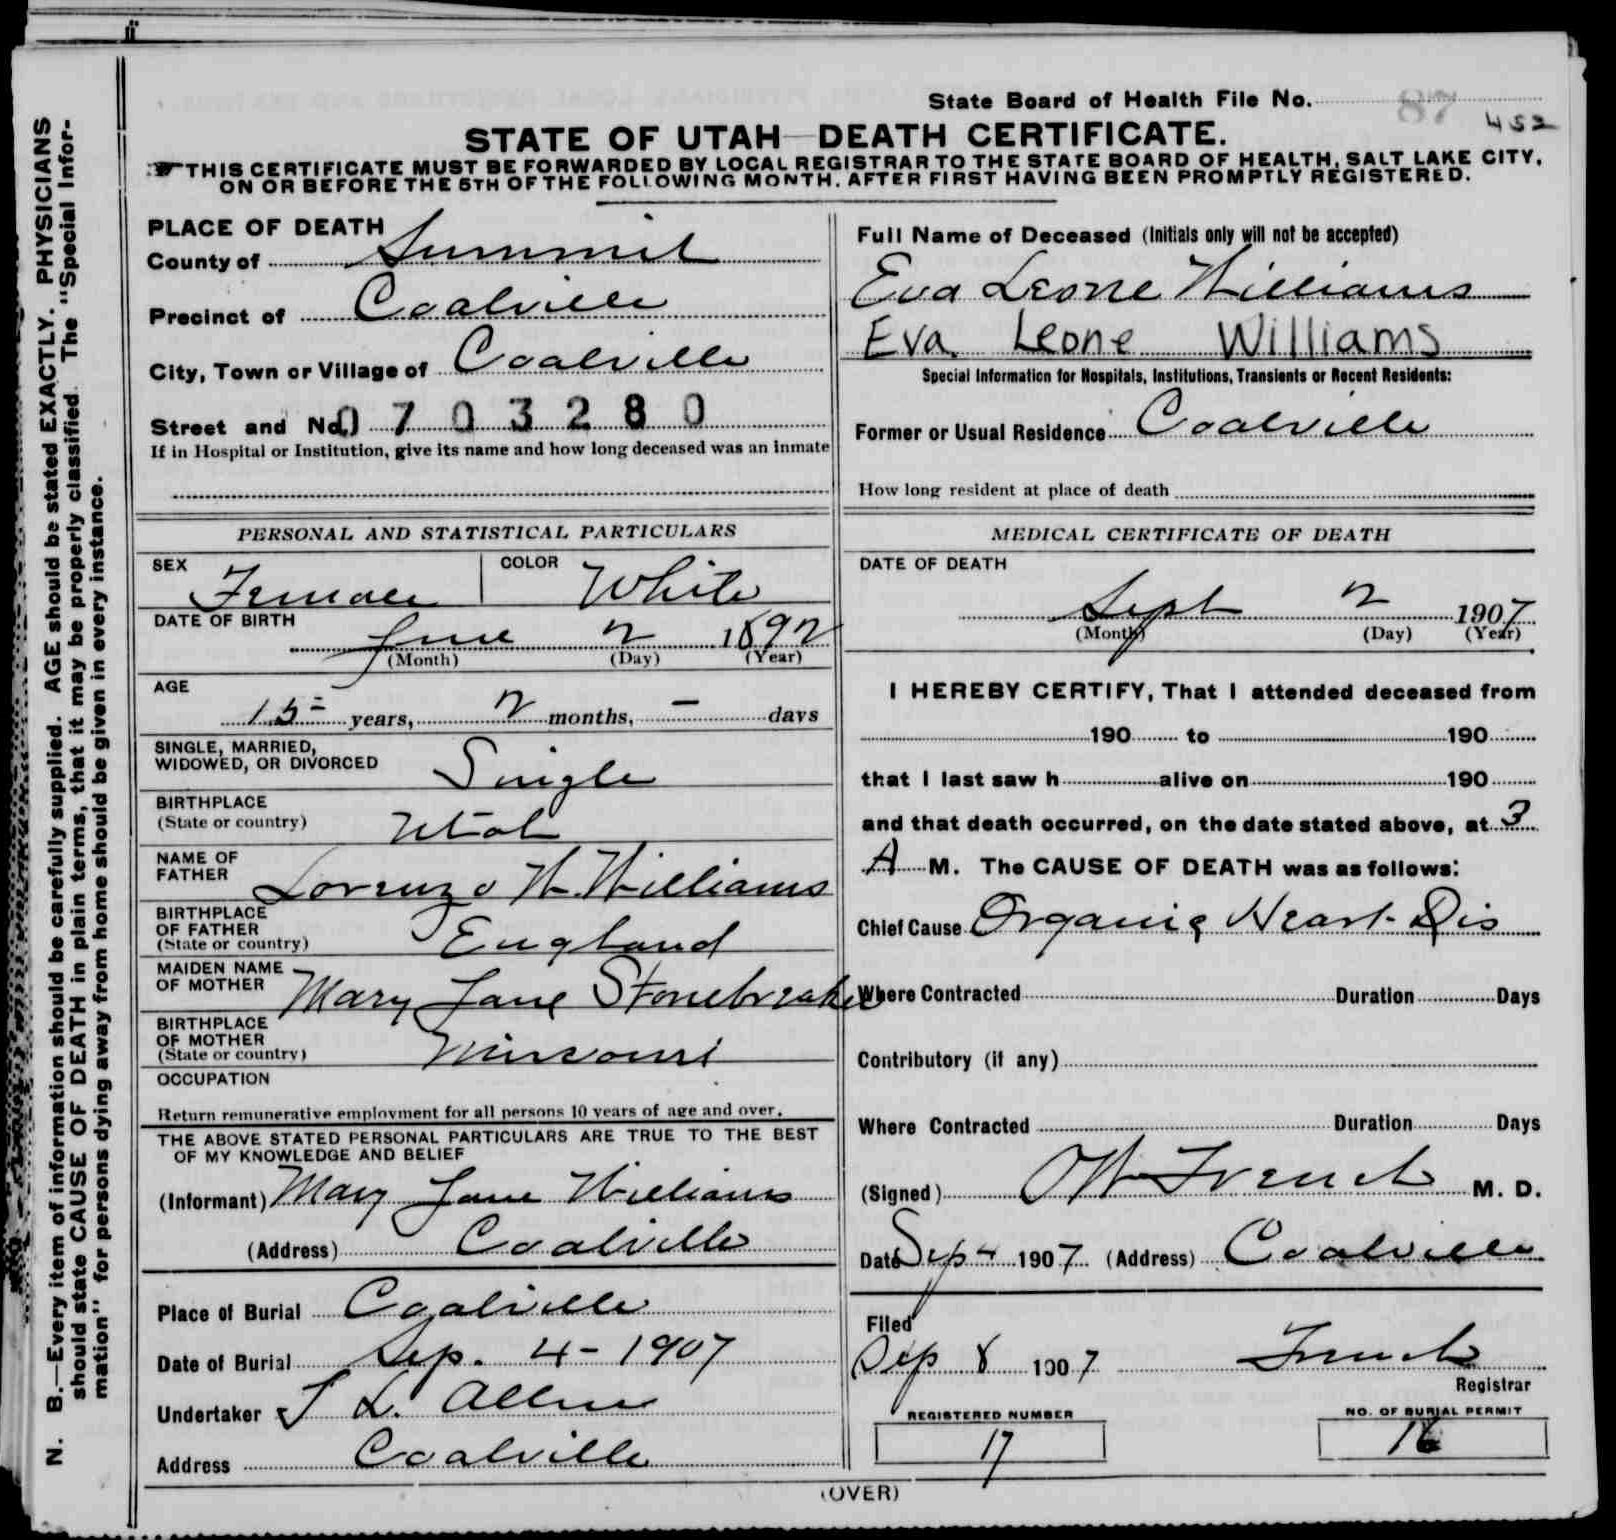 State Board of Health File No. 87 452
STATE OF UTAH—DEATH CERTIFICATE.
THIS CERTIFICATE MUST BE FORWARDED BY LOCAL REGISTRAR TO THE STATE BOARD OF HEALTH, SALT LAKE CITY,
ON OR BEFORE THE 5TH OF THE FOLLOWING MONTH, AFTER FIRST HAVING BEEN PROMPTLY REGISTERED.
N. B.—Every item of information should be carefully supplied. AGE should be stated EXACTLY. PHYSICIANS
should state CAUSE OF DEATH in plain terms, that it may be properly classified. The "Special Infor-
mation" for persons dying away from home should be given in every instance.
PLACE OF DEATH
County of Summit
Precinct of Coalville
City, Town or Village of Coalville
Street and No. 0703280
If in Hospital or Institution, give its name and how long deceased was an inmate
Full Name of Deceased (Initials only will not be accepted)
Eva Leone Williams
Eva Leone Williams
Special Information for Hospitals, Institutions, Transients or Recent Residents:
Former or Usual Residence Coalville
How long resident at place of death
PERSONAL AND STATISTICAL PARTICULARS
SEX Female COLOR White
DATE OF BIRTH
June 2 1892
(Month) (Day) (Year)
AGE
15 years, 2 months, — days
SINGLE, MARRIED,
WIDOWED, OR DIVORCED Single
BIRTHPLACE
(State or country) Utah
NAME OF
FATHER Lorenzo W. Williams
BIRTHPLACE
OF FATHER
(State or country) England
MAIDEN NAME
OF MOTHER Mary Jane Stonebraker
BIRTHPLACE
OF MOTHER
(State or country) Missouri
OCCUPATION
Return remunerative employment for all persons 10 years of age and over.
THE ABOVE STATED PERSONAL PARTICULARS ARE TRUE TO THE BEST
OF MY KNOWLEDGE AND BELIEF
(Informant) Mary Jane Williams
(Address) Coalville
Place of Burial Coalville
Date of Burial Sep. 4-1907
Undertaker L. Allen
Address Coalville
MEDICAL CERTIFICATE OF DEATH
DATE OF DEATH
Sept 2 1907
(Month) (Day) (Year)
I HEREBY CERTIFY, That I attended deceased from
190 to 190
that I last saw h alive on 190
and that death occurred, on the date stated above, at 3
A M. The CAUSE OF DEATH was as follows:
Chief Cause Organic Heart Dis
Where Contracted Duration Days
Contributory (if any)
Where Contracted Duration Days
(Signed) French M. D.
Date Sep 4 1907 (Address) Coalville
Filed
Sep 8 1907 French
Registrar
REGISTERED NUMBER
17
NO. OF BURIAL PERMIT
16
(OVER)